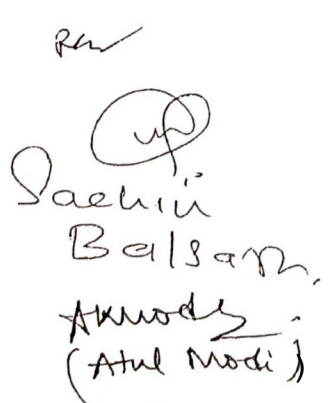 Sachin
Balsara
AKModi
(Atul Modi)